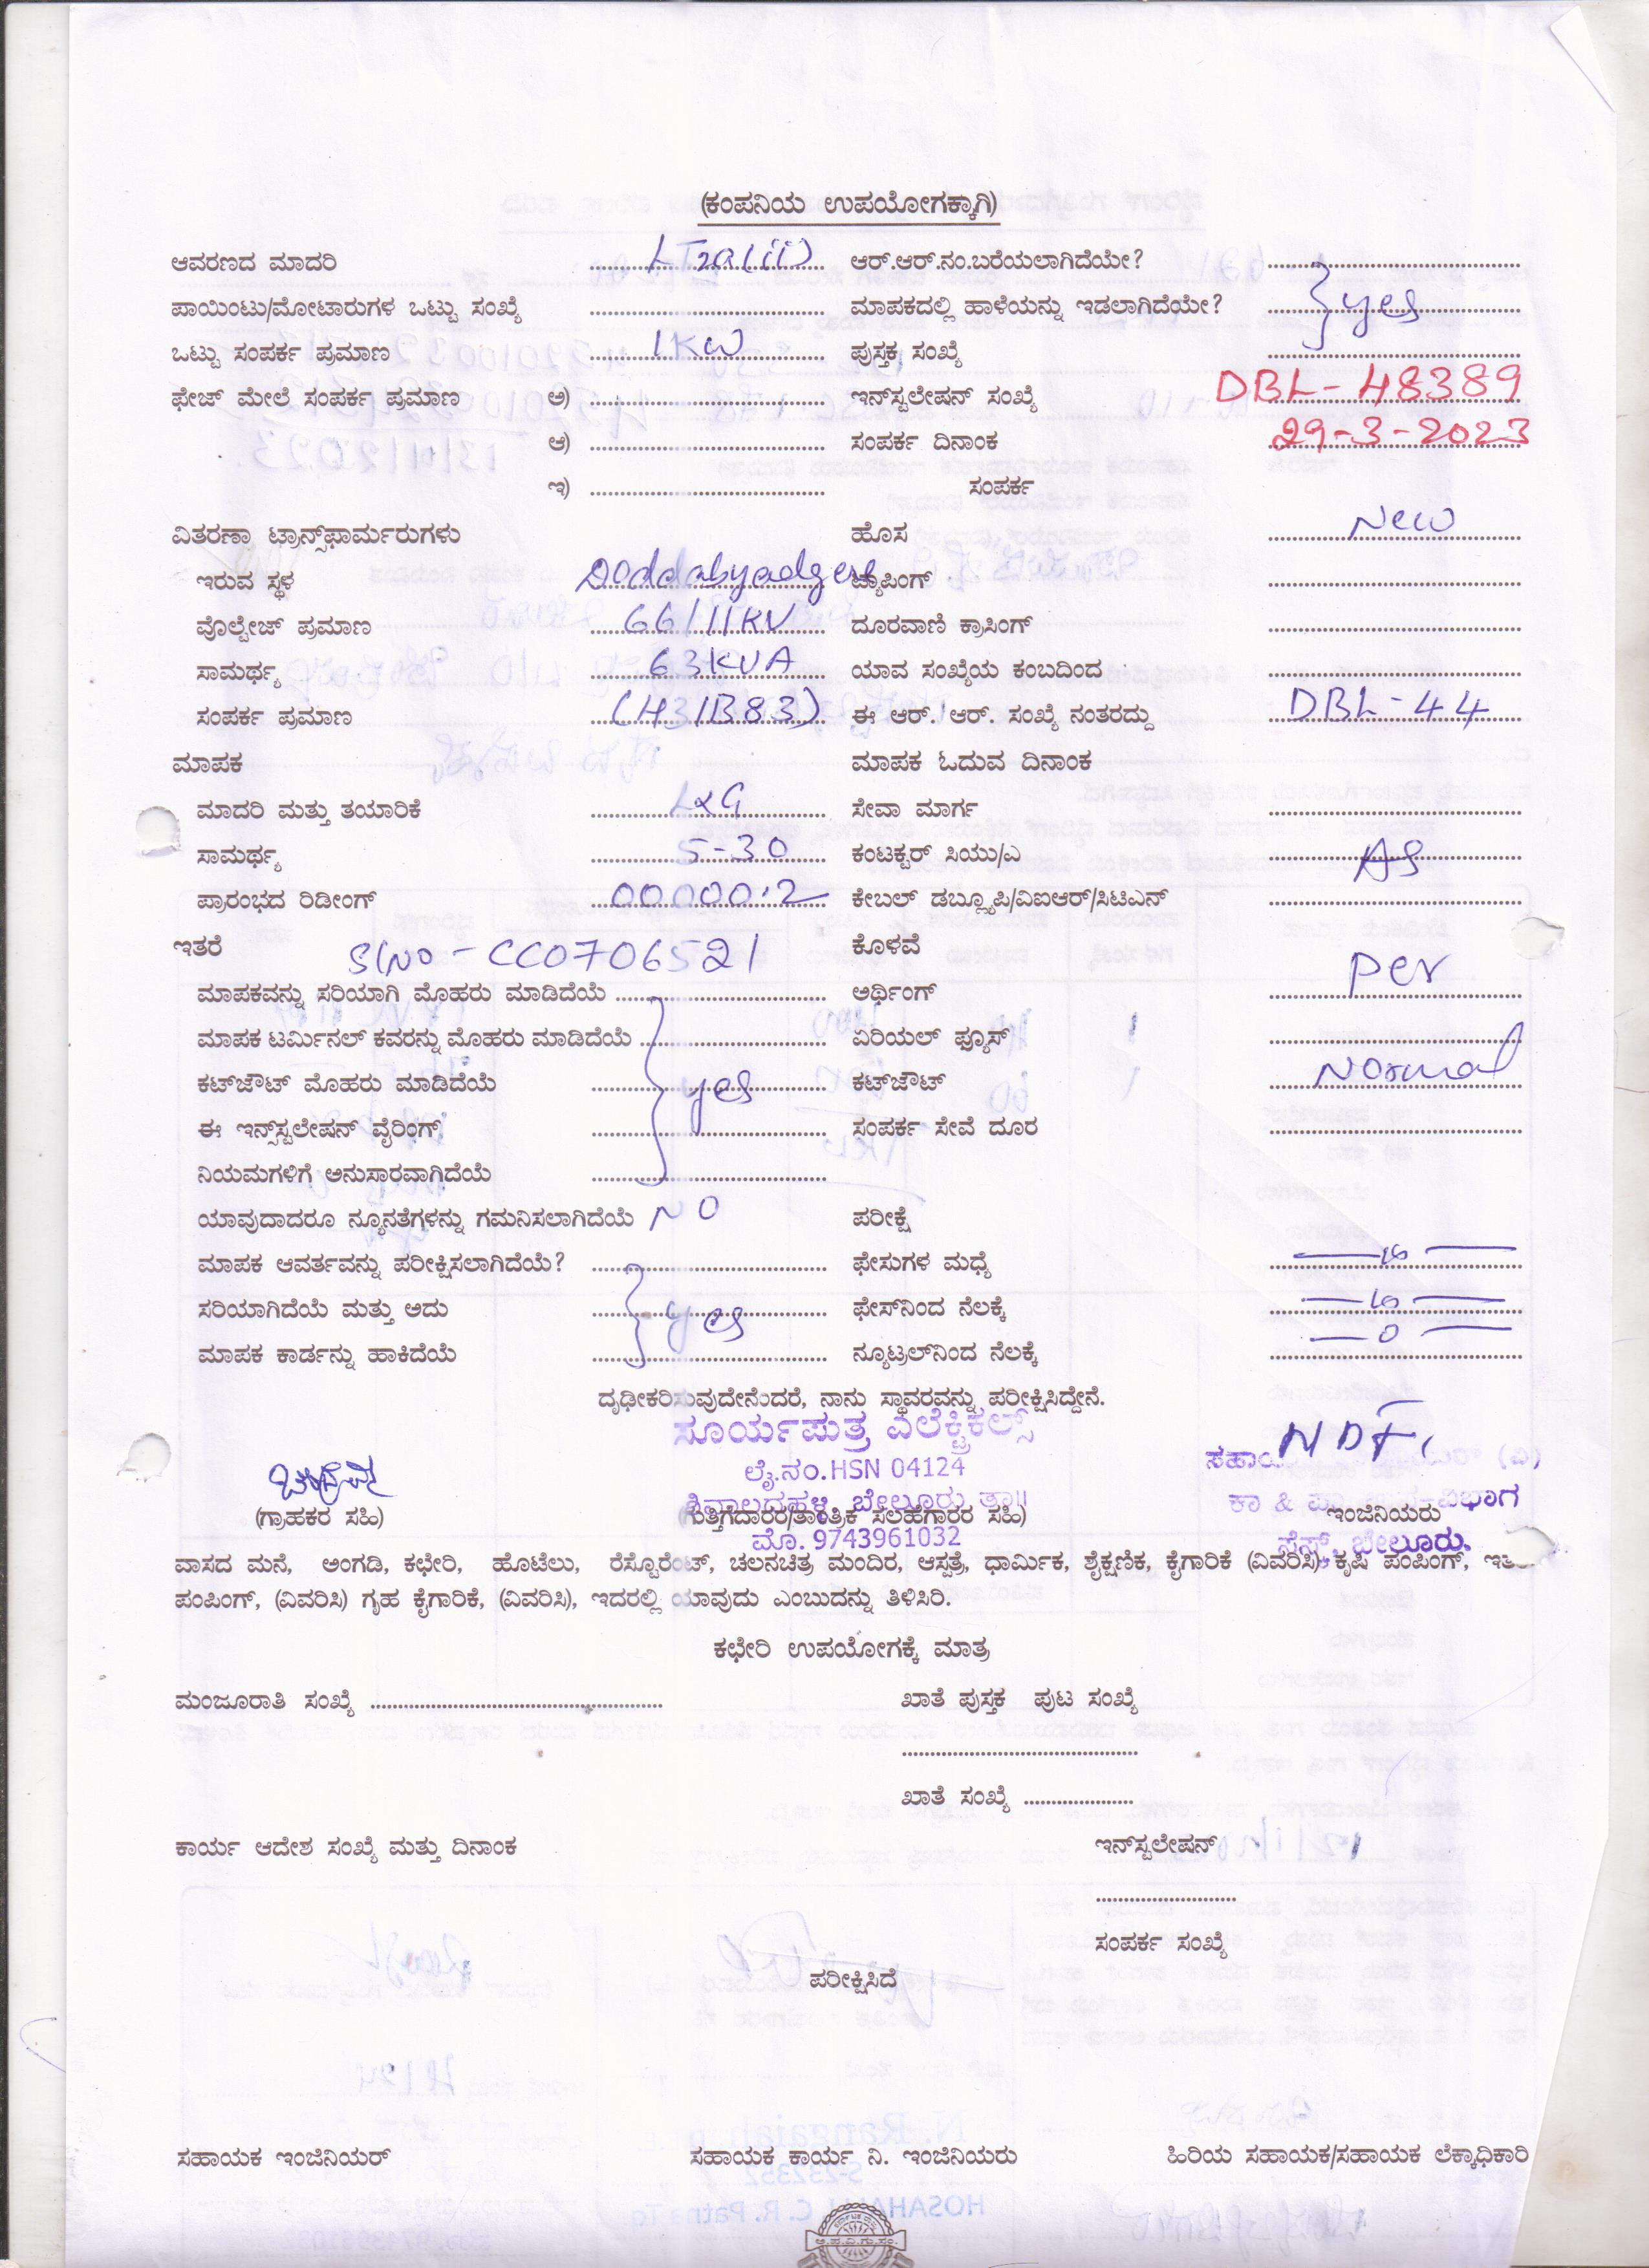 (ಕಂಪನಿಯ ಉಪಯೋಗಕ್ಕಾಗಿ)
ಆವರಣದ ಮಾದರಿ LT2a(ii) ಆರ್.ಆರ್.ನಂ.ಬರೆಯಲಾಗಿದೆಯೇ?
ಪಾಯಿಂಟು/ಮೋಟಾರುಗಳ ಒಟ್ಟು ಸಂಖ್ಯೆ ಮಾಪಕದಲ್ಲಿ ಹಾಳೆಯನ್ನು ಇಡಲಾಗಿದೆಯೇ? yes
ಒಟ್ಟು ಸಂಪರ್ಕ ಪ್ರಮಾಣ 1KW ಪುಸ್ತಕ ಸಂಖ್ಯೆ
ಫೇಜ್ ಮೇಲೆ ಸಂಪರ್ಕ ಪ್ರಮಾಣ ಅ) ಇನ್‌ಸ್ಟಲೇಷನ್ ಸಂಖ್ಯೆ DBL-48389
ಆ) ಸಂಪರ್ಕ ದಿನಾಂಕ 29-3-2023
ಇ) ಸಂಪರ್ಕ
ವಿತರಣಾ ಟ್ರಾನ್ಸ್‌ಫಾರ್ಮರುಗಳು ಹೊಸ New
ಇರುವ ಸ್ಥಳ Doddabyadgere ಟ್ಯಾಪಿಂಗ್
ವೊಲ್ಟೇಜ್ ಪ್ರಮಾಣ 66/11KV ದೂರವಾಣಿ ಕ್ರಾಸಿಂಗ್
ಸಾಮರ್ಥ್ಯ 63KVA ಯಾವ ಸಂಖ್ಯೆಯ ಕಂಬದಿಂದ
ಸಂಪರ್ಕ ಪ್ರಮಾಣ (H31B83) ಈ ಆರ್. ಆರ್. ಸಂಖ್ಯೆ ನಂತರದ್ದು DBL-44
ಮಾಪಕ ಮಾಪಕ ಓದುವ ದಿನಾಂಕ
ಮಾದರಿ ಮತ್ತು ತಯಾರಿಕೆ L&G ಸೇವಾ ಮಾರ್ಗ
ಸಾಮರ್ಥ್ಯ 5-30 ಕಂಟಕ್ಟರ್ ಸಿಯು/ಎ AS
ಪ್ರಾರಂಭದ ರಿಡೀಂಗ್ 00000.2 ಕೇಬಲ್ ಡಬ್ಲ್ಯೂಪಿ/ವಿಐಆರ್/ಸಿಟಿಎಸ್
ಇತರೆ Sl No - CC0706521 ಕೊಳವೆ Per
ಮಾಪಕವನ್ನು ಸರಿಯಾಗಿ ಮೊಹರು ಮಾಡಿದೆಯೆ ಅರ್ಥಿಂಗ್
ಮಾಪಕ ಟರ್ಮಿನಲ್ ಕವರನ್ನು ಮೊಹರು ಮಾಡಿದೆಯೆ ಏರಿಯಲ್ ಫ್ಯೂಸ್
ಕಟ್‌ಜೌಟ್ ಮೊಹರು ಮಾಡಿದೆಯೆ yes ಕಟ್‌ಜೌಟ್ Normal
ಈ ಇನ್ಸ್‌ಸ್ಟಲೇಷನ್ ವೈರಿಂಗ್ ಸಂಪರ್ಕ ಸೇವೆ ದೂರ
ನಿಯಮಗಳಿಗೆ ಅನುಸಾರವಾಗಿದೆಯೆ
ಯಾವುದಾದರೂ ನ್ಯೂನತೆಗಳನ್ನು ಗಮನಿಸಲಾಗಿದೆಯೆ NO ಪರೀಕ್ಷೆ
ಮಾಪಕ ಆವರ್ತವನ್ನು ಪರೀಕ್ಷಿಸಲಾಗಿದೆಯೆ? ಫೇಸುಗಳ ಮಧ್ಯೆ
ಸರಿಯಾಗಿದೆಯೆ ಮತ್ತು ಅದು yes ಫೇಸ್‌ನಿಂದ ನೆಲಕ್ಕೆ
ಮಾಪಕ ಕಾರ್ಡನ್ನು ಹಾಕಿದೆಯೆ ನ್ಯೂಟ್ರಲ್‌ನಿಂದ ನೆಲಕ್ಕೆ 0
ದೃಢೀಕರಿಸುವುದೇನೆಂದರೆ, ನಾನು ಸ್ಥಾವರವನ್ನು ಪರೀಕ್ಷಿಸಿದ್ದೇನೆ.
ಸೂರ್ಯಪುತ್ರ ಎಲೆಕ್ಟ್ರಿಕಲ್ಸ್
ಲೈ.ನಂ.HSN 04124
ಶಿವಾಲದಹಳ್ಳಿ, ಬೇಲೂರು ತಾ॥ ಕಾ & ಪಾ
(ಗ್ರಾಹಕರ ಸಹಿ) (ಗುತ್ತಿಗೆದಾರರ/ತಾಂತ್ರಿಕ ಸಲಹೆಗಾರರ ಸಹಿ) ಇಂಜಿನಿಯರು
ಮೊ. 9743961032 ಸೆಸ್ಕ್, ಬೇಲೂರು.
ವಾಸದ ಮನೆ, ಅಂಗಡಿ, ಕಛೇರಿ, ಹೊಟೆಲು, ರೆಸ್ಟೊರೆಂಟ್, ಚಲನಚಿತ್ರ ಮಂದಿರ, ಆಸ್ಪತ್ರೆ, ಧಾರ್ಮಿಕ, ಶೈಕ್ಷಣಿಕ, ಕೈಗಾರಿಕೆ (ವಿವರಿಸಿ) ಕೃಷಿ ಪಂಪಿಂಗ್,
ಪಂಪಿಂಗ್, (ವಿವರಿಸಿ) ಗೃಹ ಕೈಗಾರಿಕೆ, (ವಿವರಿಸಿ), ಇದರಲ್ಲಿ ಯಾವುದು ಎಂಬುದನ್ನು ತಿಳಿಸಿರಿ.
ಕಛೇರಿ ಉಪಯೋಗಕ್ಕೆ ಮಾತ್ರ
ಮಂಜೂರಾತಿ ಸಂಖ್ಯೆ ಖಾತೆ ಪುಸ್ತಕ ಪುಟ ಸಂಖ್ಯೆ
ಖಾತೆ ಸಂಖ್ಯೆ
ಕಾರ್ಯ ಆದೇಶ ಸಂಖ್ಯೆ ಮತ್ತು ದಿನಾಂಕ ಇನ್‌ಸ್ಟಲೇಷನ್
ಸಂಪರ್ಕ ಸಂಖ್ಯೆ
ಪರೀಕ್ಷಿಸಿದೆ
ಸಹಾಯಕ ಇಂಜಿನಿಯರ್ ಸಹಾಯಕ ಕಾರ್ಯ ನಿ. ಇಂಜಿನಿಯರು ಹಿರಿಯ ಸಹಾಯಕ/ಸಹಾಯಕ ಲೆಕ್ಕಾಧಿಕಾರಿ